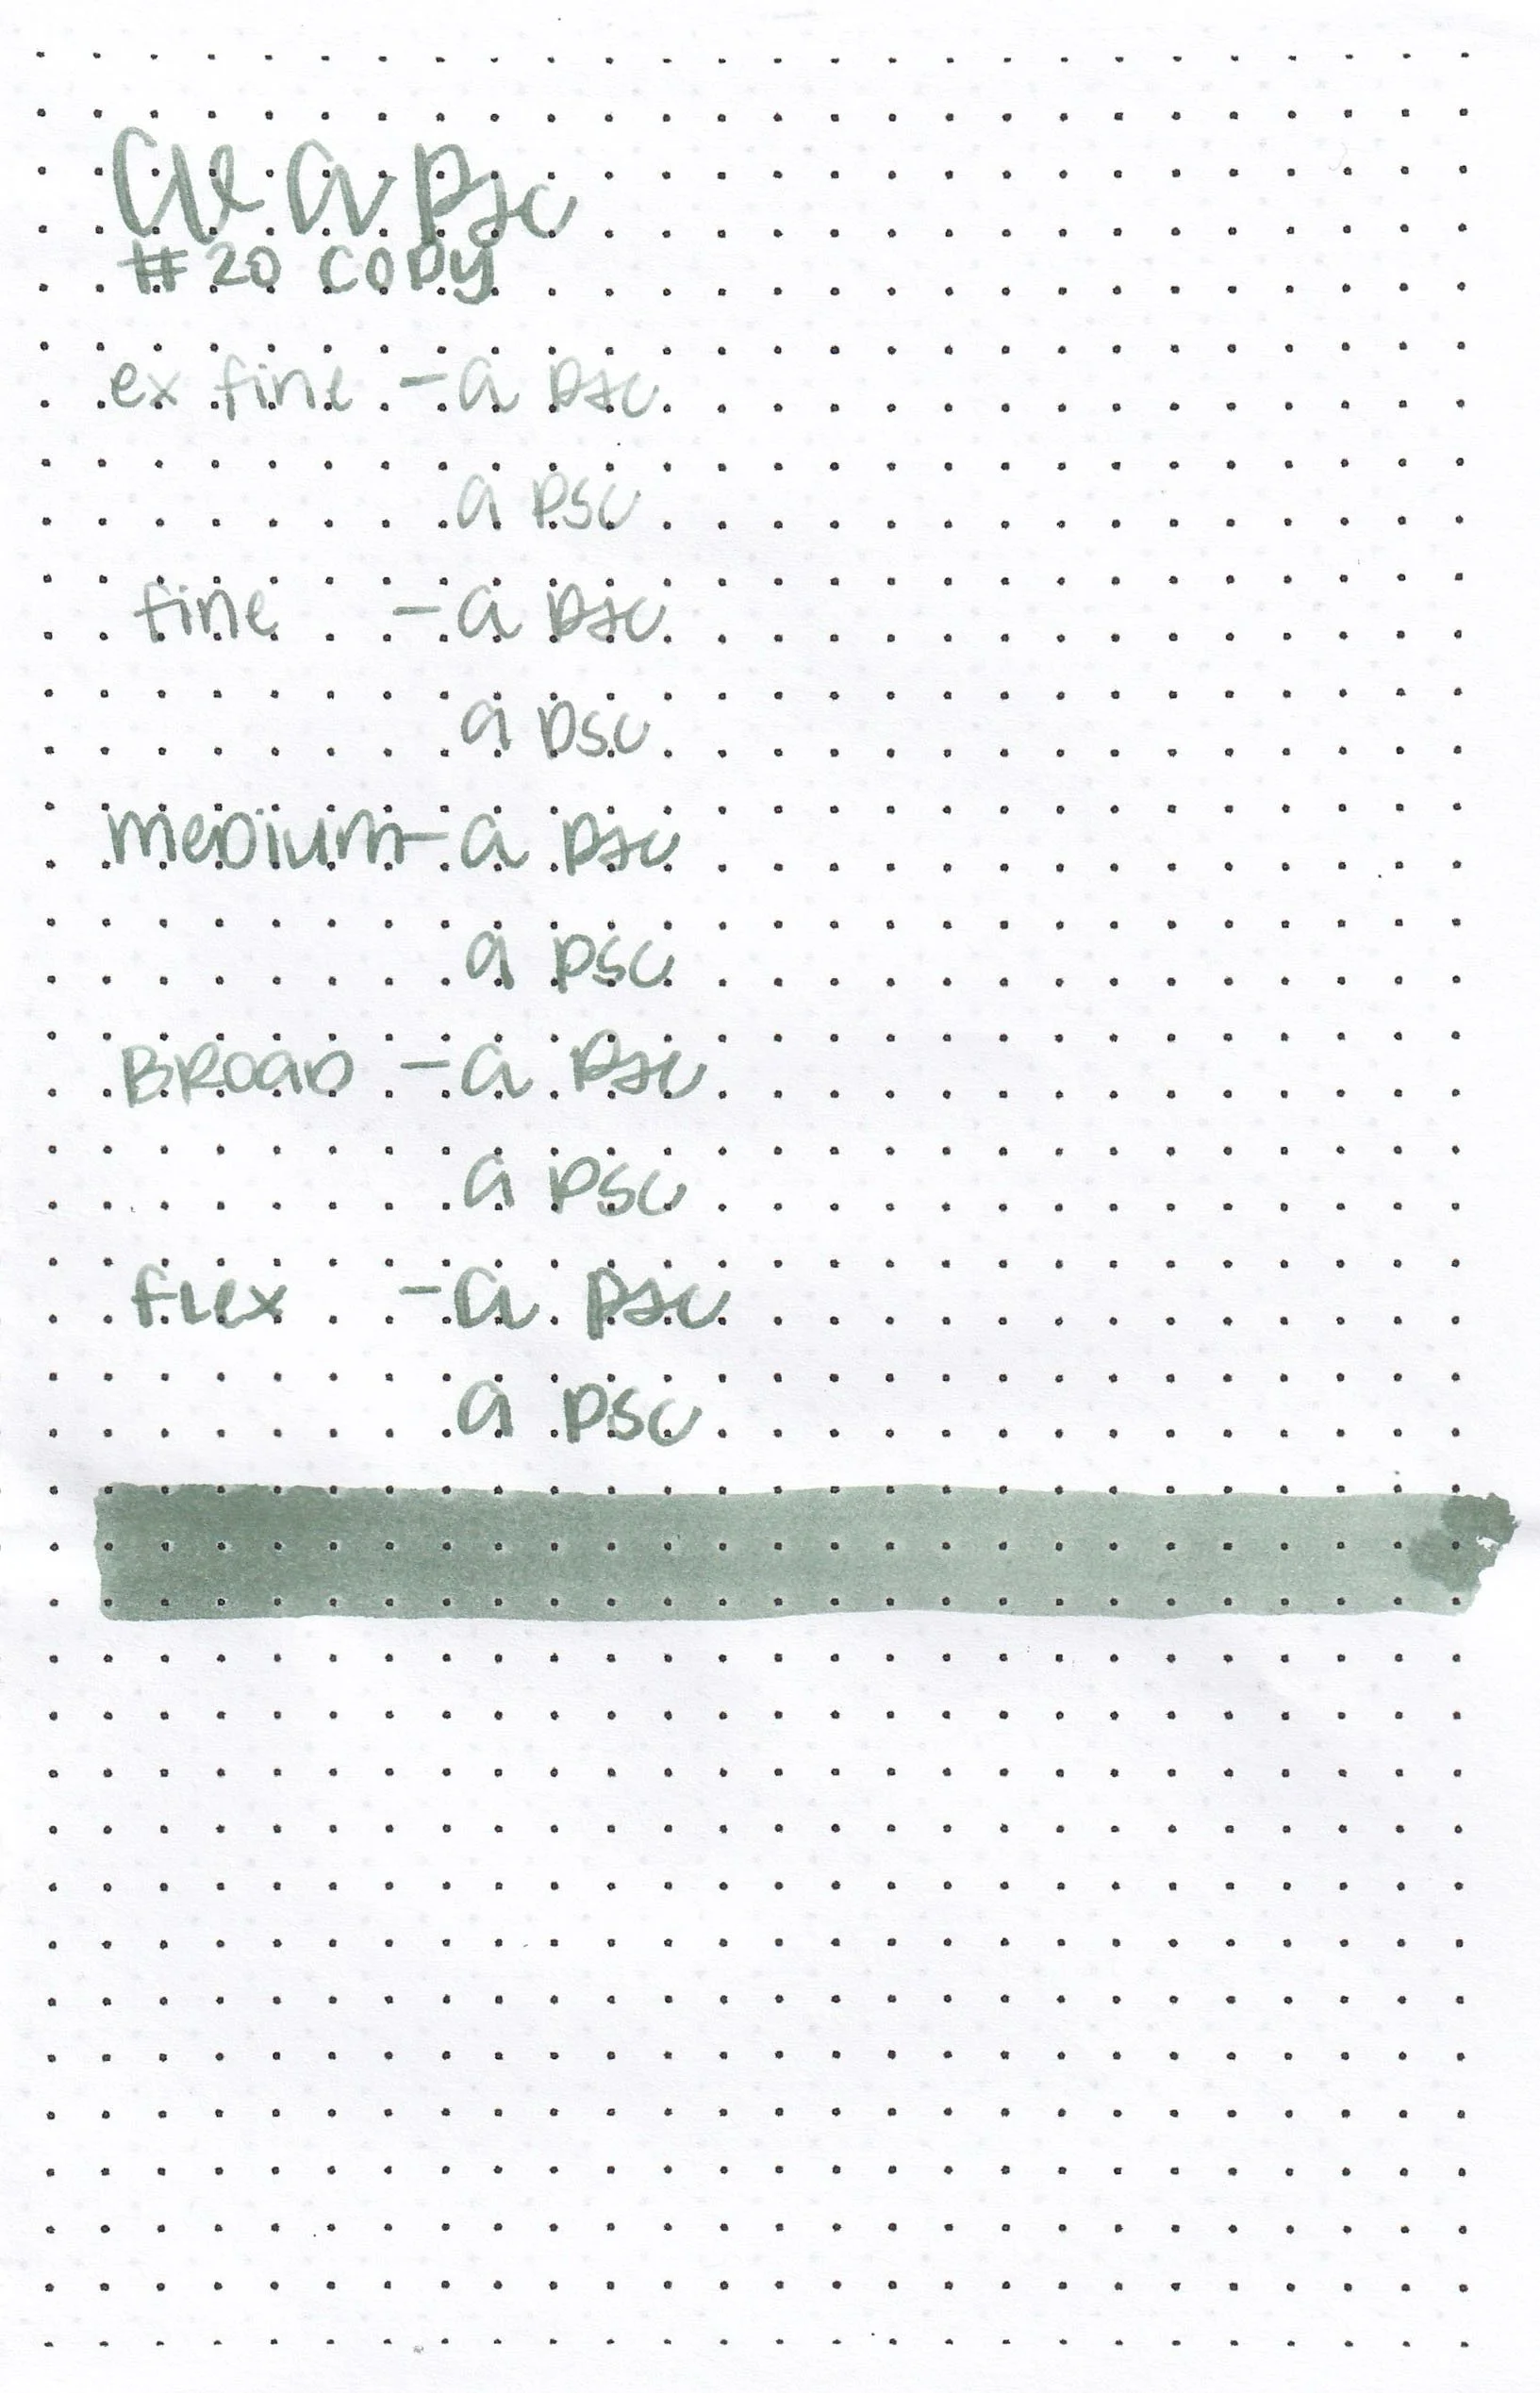 a psc
#20 copy
ex fine - a psc
a psc
fine - a psc
a psc
medium - a psc
a psc
Broad - a psc
a psc
flex - a psc
a psc